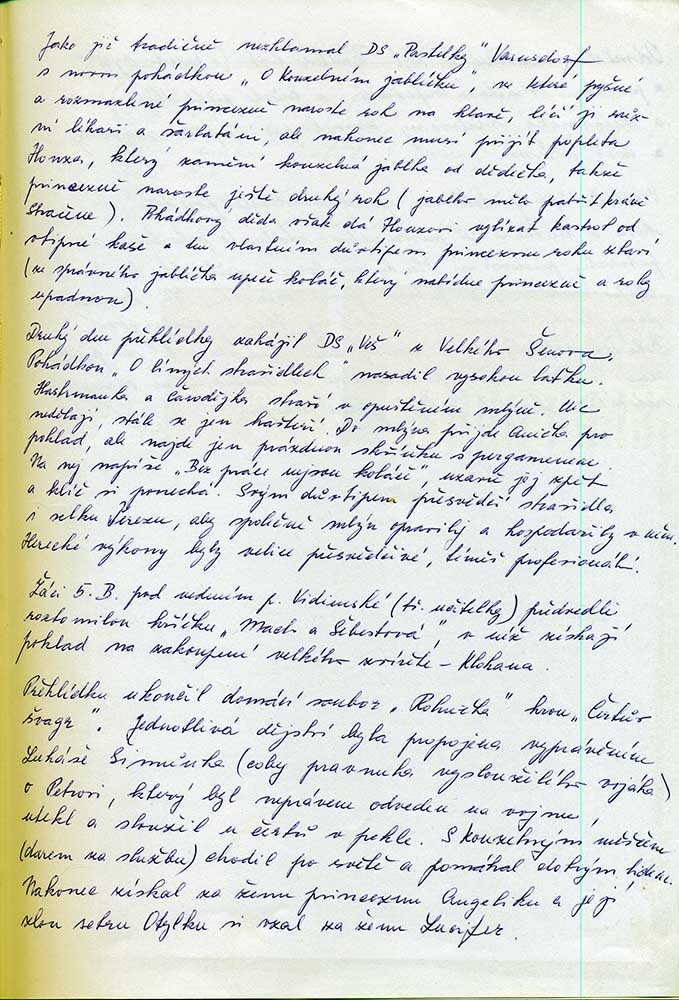 Jako již tradičně nezklamal DS „Pastelky" Varnsdorf
s novou pohádkou „O kouzelném jablíčku", ve které pyšné
a rozmazlené princezně naroste roh na hlavě, léčí ji
ní lékaři a šarlatáni, ale nakonec musí přijít popleta
Honza, který zamění kouzelná jablka od dědečka, takže
princezně naroste ještě druhý roh (jablko mělo patřit krávě
Stračeně). Pohádkový děda však dá Honzovi vylízat kastrol od
vtipné kaše a ten vlastním důvtipem princeznu rohů zbaví
(ze správného jablíčka upeče koláč, který nabídne princezně a rohy
upadnou).
Druhý den přehlídky zahájil DS „Veš" z Velkého Šenova.
Pohádkou „O líných strašidlech" nasadil vysokou laťku.
Hastrmanka a čarodějka straší v opuštěném mlýně. Nic
nedělají, stále se jen hašteří. Do mlýna přijde Anička pro
poklad, ale najde jen prázdnou skříňku s pergamenem.
Na něj napíše „Bez práce nejsou koláče", uzavře jej zpět
a klíč si ponechá. Svým důvtipem přesvědčí strašidla
i selku Verezu, aby společně mlýn opravily a hospodařily v něm.
Herecké výkony byly velice přesvědčivé, téměř profesionální.
Žáci 5. B. pod vedením p. Vidimské (tř. učitelky) předvedli
roztomilou hříčku „Mach a Šebestová", v níž získají
poklad na zakoupení velkého zvířete – Klokana.
Přehlídku ukončil domácí soubor „Rolnička" hrou „Čertův
švagr". Jednotlivá dějství byla propojena vyprávěním
Lukáše Šimůnka (coby pravnuka vysloužilého vojáka)
o Petrovi, který byl neprávem odveden na vojnu,
utekl a sloužil u čertů v pekle. S kouzelným měšcem
(darem za službu) chodil po světě a pomáhal dobrým lidem.
Nakonec získal za ženu princeznu Angeliku a její
zlou sestru Otylku si vzal za ženu Lucifer.